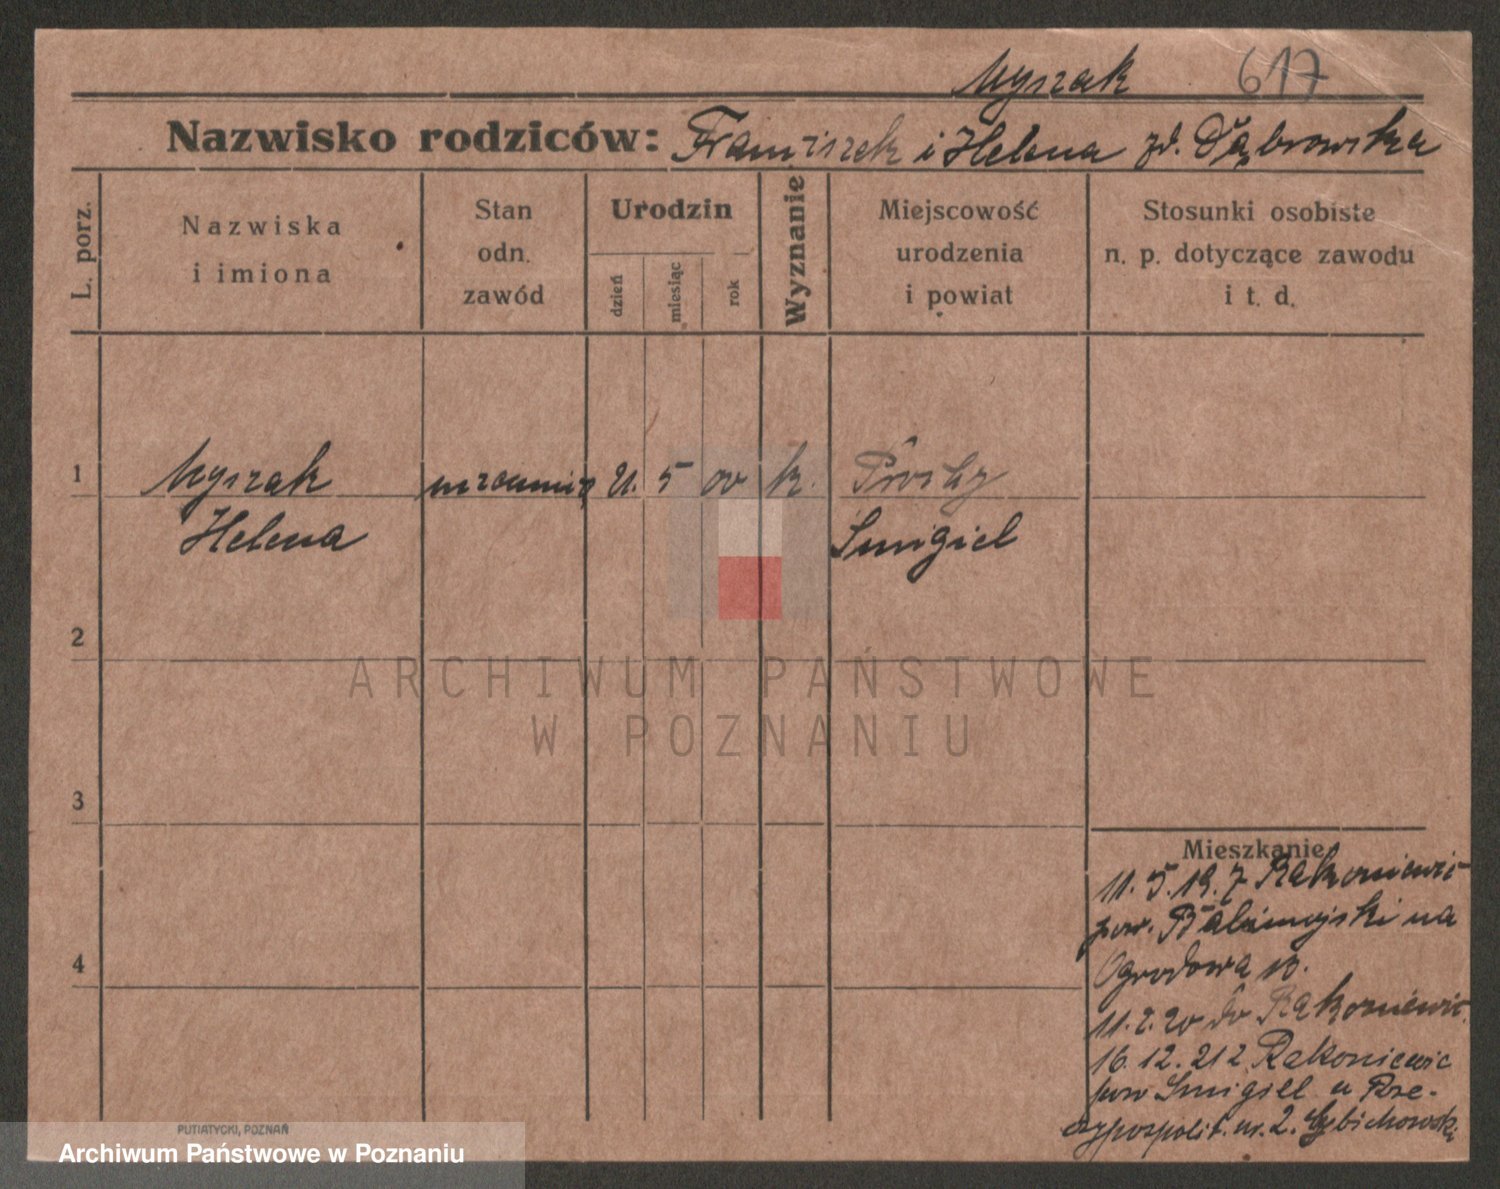 Myszak 617
Nazwisko rodziców: Franciszek i Helena zd. Dąbrowska
L. porz.
Nazwiska
i imiona
Stan
odn.
zawód
Urodzin
dzień
miesiąc
rok
Wyznanie
Miejscowość
urodzenia
i powiat
Stosunki osobiste
n. p. dotyczące zawodu
i t. d.
1 Myszak 21. 5 00 k. Prochy
Helena Śmigiel
2
ARCHIWUM PAŃSTWOWE
W POZNANIU
3
4
Mieszkanie
11. 5. 19. z Rakoniewic
pow. na
Ogrodowa 10.
11. 2. 20 do Rakoniewic
16. 12. 21 z Rakoniewic
pow Śmigiel u Rze-
czypospolit. nr. 2. Cybichowski
PUTIATYCKI, POZNAŃ
Archiwum Państwowe w Poznaniu